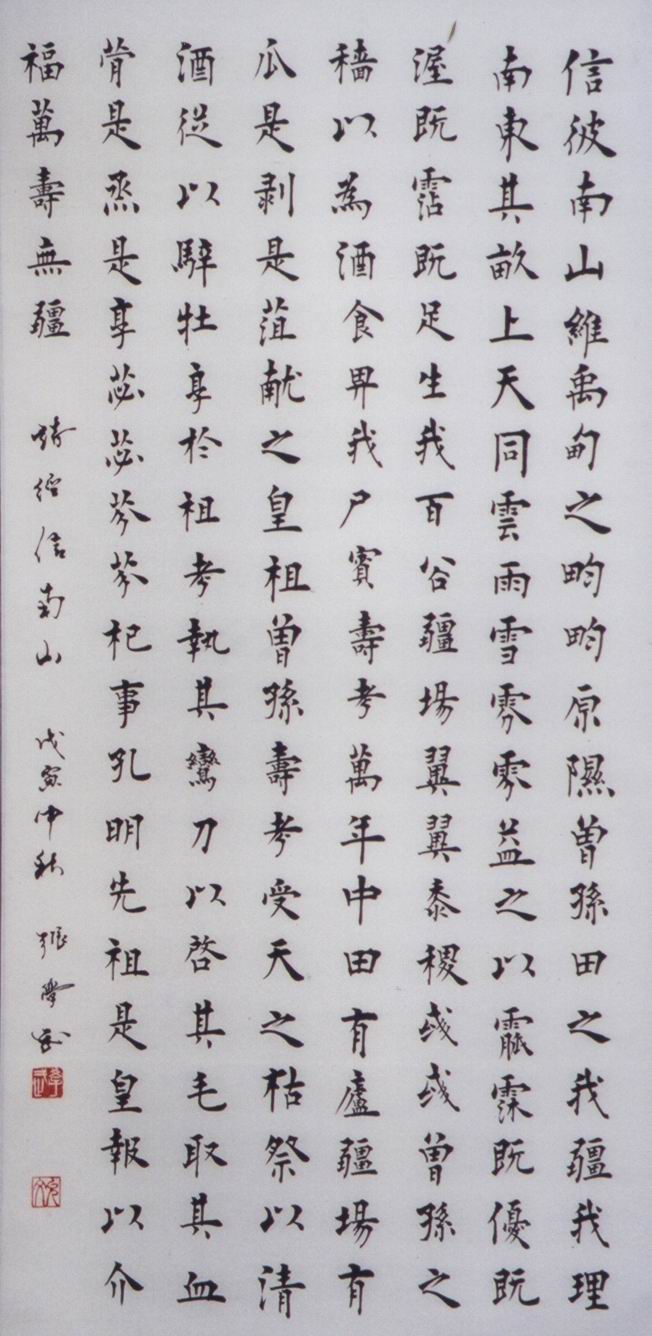 信彼南山維禹甸之畇畇原隰曾孫田之我疆我理
南東其畝上天同雲雨雪雰雰益之以霢霂既優既
渥既霑既足生我百谷疆場翼翼黍稷彧彧曾孫之
穡以為酒食畀我尸賓壽考萬年中田有廬疆場有
瓜是剥是菹献之皇祖曾孫壽考受天之枯祭以清
酒從以騂牡享於祖考執其鸞刀以啓其毛取其血
膋是烝是享苾苾芬芬祀事孔明先祖是皇報以介
福萬壽無疆 詩經信南山 戊寅中秋 張學武